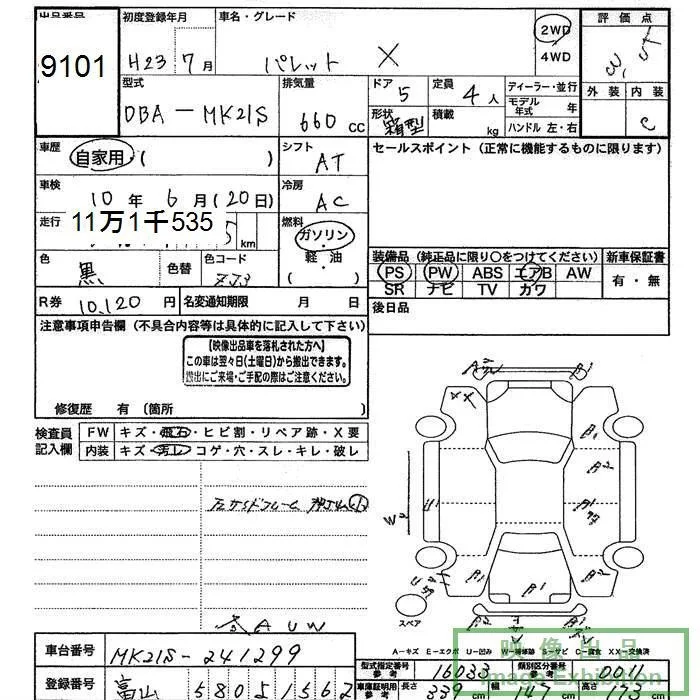 出品番号 初度登録年月 車名・グレード 評価点
9101 H23 7月 パレット X 2WD 4WD
型式 排気量 ドア 定員 ディーラー・並行 外装 内装
DBA-MK21S 660cc 5 4人 モデル年式 年
形状 箱型 積載 kg ハンドル 左・右 C
車歴 自家用・( ) シフト AT セールスポイント(正常に機能するものに限ります)
車検 10年 6月(20日) 冷房 AC
走行 11万1千535 km 燃料 ガソリン・軽・油 ( )
色 黒 色替 色コード ZJ3
装備品(純正品に限り○をつけてください) 新車保証書
PS PW ABS エアB AW 有・無
SR ナビ TV カワ
R券 10,120円 名変通知期限 月 日 後日品
注意事項申告欄(不具合内容等は具体的に記入して下さい)
【映像出品車を落札された方へ】
この車は翌々日(土曜日)から搬出できます。
搬出にご来場・ご手配の際はご注意ください。
修復歴 有(箇所 )
検査員記入欄 FW キズ・飛石・ヒビ割・リペア跡・X要
内装 キズ・汚レ・コゲ・穴・スレ・キレ・破レ
スペア
AUW
A-キズ E-エクボ U-凹み W-補修跡 S-サビ C-腐食 XX-交換済
車台番号 MK21S-241299
型式指定番号 参考 16033 類別区分番号 参考 0011
登録番号 富山 580 5 1562
車庫証明用 参考 長さ 339cm 幅 147cm 高さ 173cm
映像出品
Image Exhibition